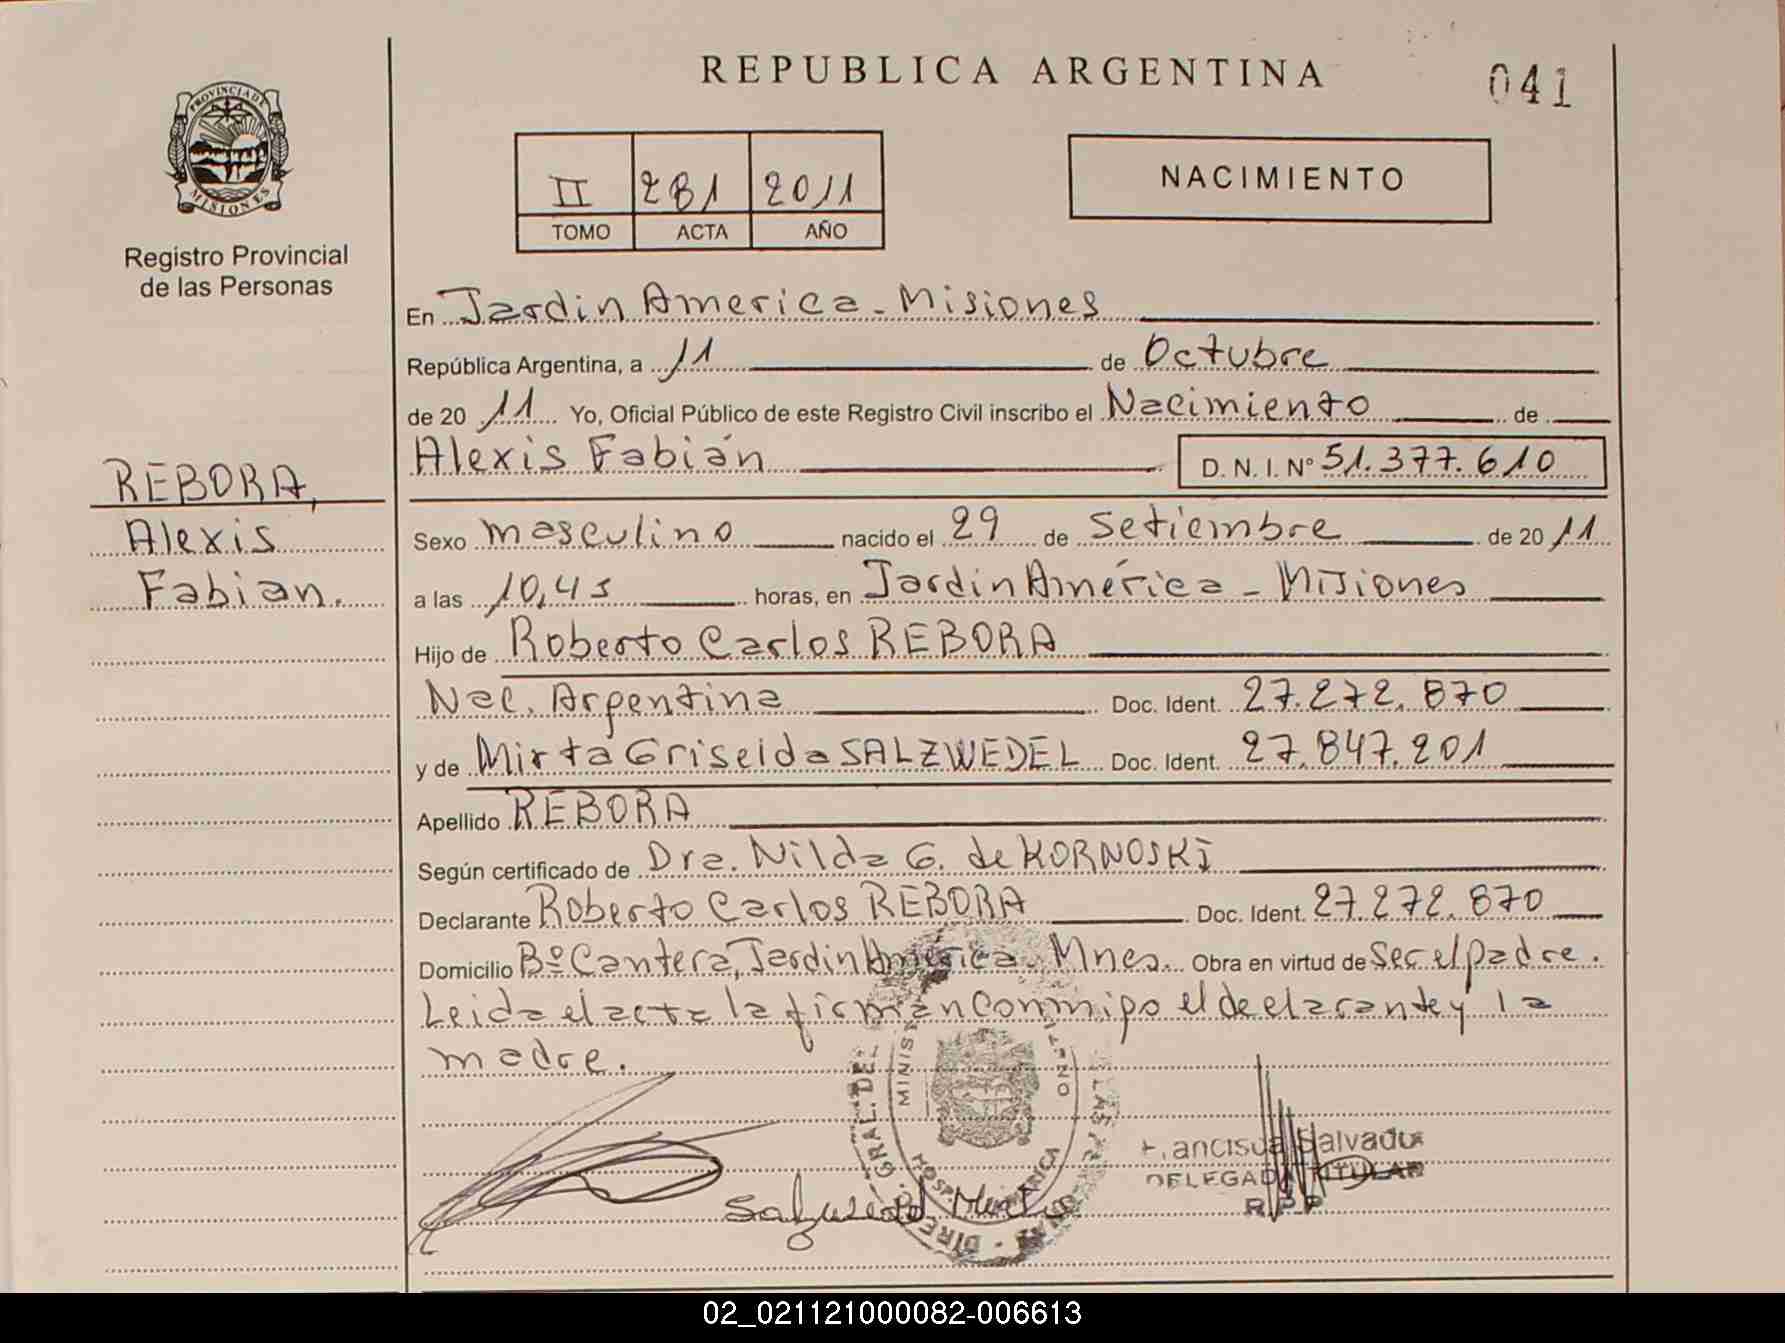 REPUBLICA ARGENTINA
041
PROVINCIA DE
MISIONES
Registro Provincial
de las Personas
II 281 2011
TOMO ACTA AÑO
NACIMIENTO
En Jardin America - Misiones
República Argentina, a 11 de Octubre
de 20 11 Yo, Oficial Público de este Registro Civil inscribo el Nacimiento de
Alexis Fabián D. N. I. Nº 51.377.610
REBORA,
Alexis
Fabian.
Sexo masculino nacido el 29 de Setiembre de 20 11
a las 10,45 horas, en Jardin América - Misiones
Hijo de Roberto Carlos REBORA
Nac. Argentina Doc. Ident. 27.272.870
y de Mirta Griselda SALZWEDEL Doc. Ident. 27.847.201
Apellido REBORA
Según certificado de Dra. Nilda G. de KORNOSKI
Declarante Roberto Carlos REBORA Doc. Ident. 27.272.870
Domicilio Bº Cantera, Jardin America - Mnes. Obra en virtud de Ser el padre.
Leida el acta la firman conmigo el declarante y la
madre.
GRAL. DEL
MINIS
HOSP.
Salzwedel Mirta
Francisca Salvador
DELEGADA TITULAR
R P P
02_021121000082-006613